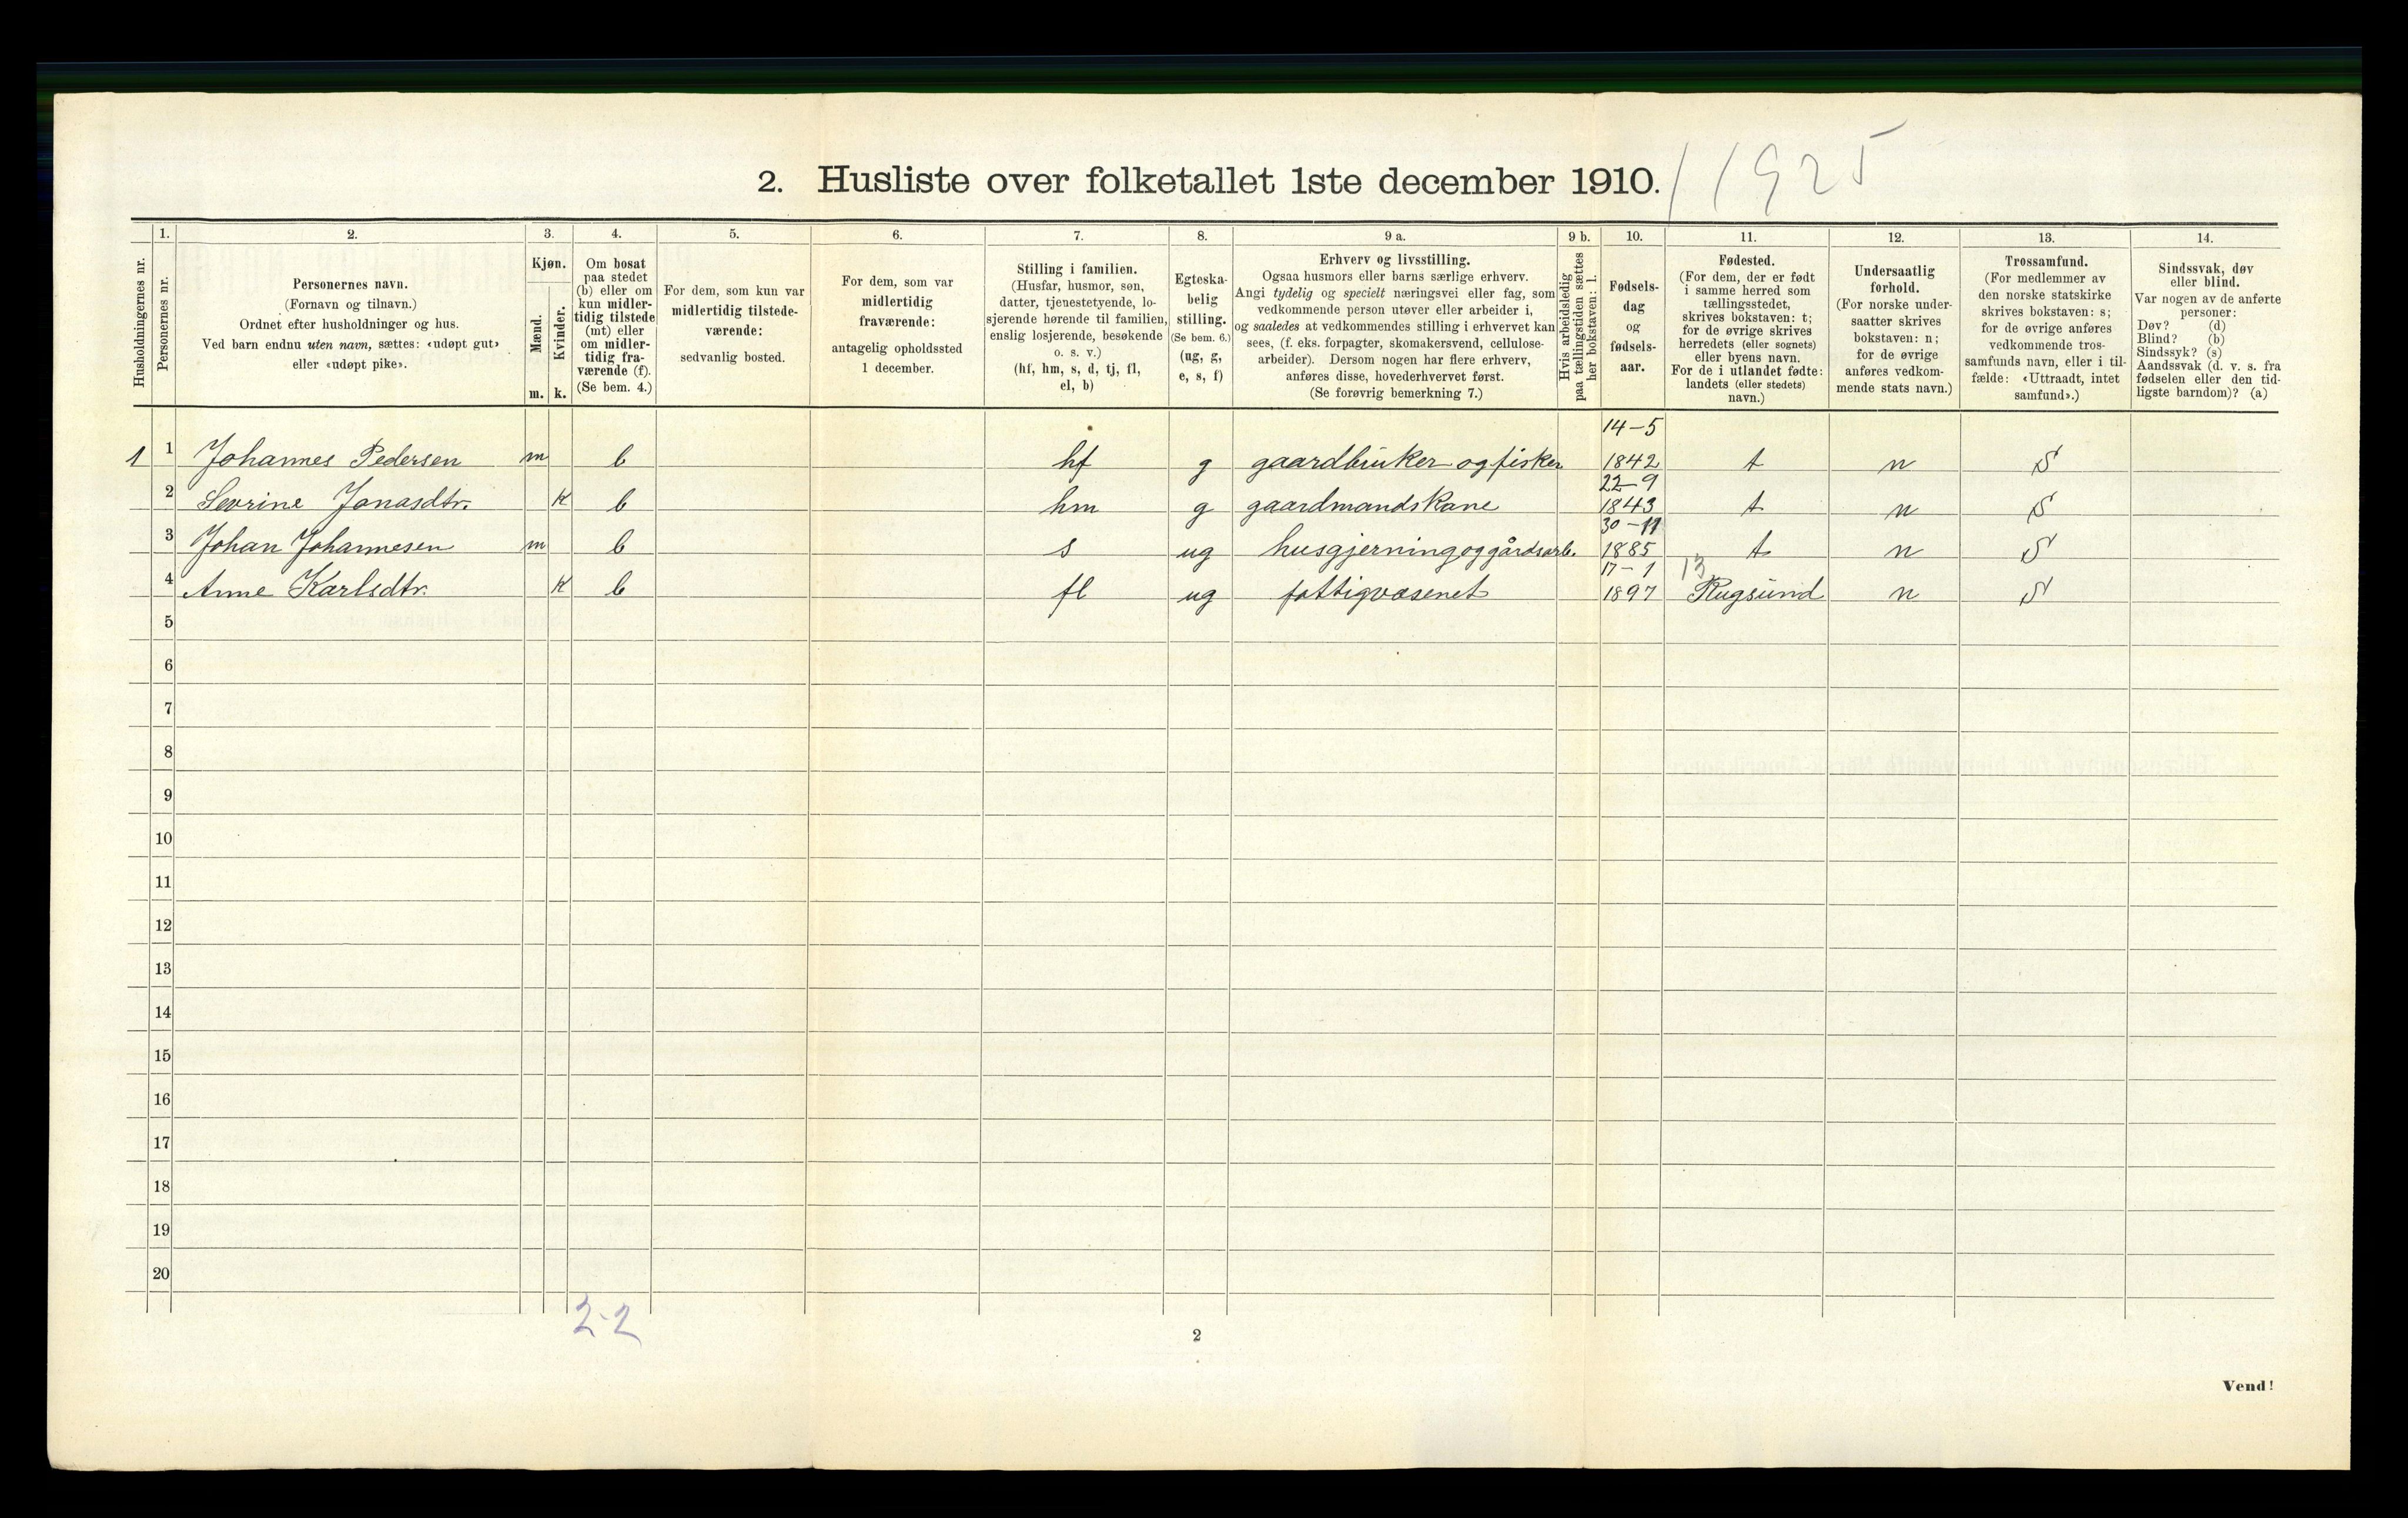 2. Husliste over folketallet 1ste december 1910.
11925
Husholdningernes nr.
1.
Personernes nr.
2.
Personernes navn.
(Fornavn og tilnavn.)
Ordnet efter husholdninger og hus.
Ved barn endnu uten navn, sættes: «udøpt gut»
eller «udøpt pike».
3.
Kjøn.
Mænd.
Kvinder.
m. k.
4.
Om bosat
paa stedet
(b) eller om
kun midler-
tidig tilstede
(mt) eller
om midler-
tidig fra-
værende (f).
(Se bem. 4.)
5.
For dem, som kun var
midlertidig tilstede-
værende:
sedvanlig bosted.
6.
For dem, som var
midlertidig
fraværende:
antagelig opholdssted
1 december.
7.
Stilling i familien.
(Husfar, husmor, søn,
datter, tjenestetyende, lo-
sjerende hørende til familien,
enslig losjerende, besøkende
o. s. v.)
(hf, hm, s, d, tj, fl,
el, b)
8.
Egteska-
belig
stilling.
(Se bem. 6.)
(ug, g,
e, s, f)
9 a.
Erhverv og livsstilling.
Ogsaa husmors eller barns særlige erhverv.
Angi tydelig og specielt næringsvei eller fag, som
vedkommende person utøver eller arbeider i,
og saaledes at vedkommendes stilling i erhvervet kan
sees, (f. eks. forpagter, skomakersvend, cellulose-
arbeider). Dersom nogen har flere erhverv,
anføres disse, hovederhvervet først.
(Se forøvrig bemerkning 7.)
9 b.
Hvis arbeidsledig
paa tællingstiden sættes
her bokstaven: l.
10.
Fødsels-
dag
og
fødsels-
aar.
11.
Fødested.
(For dem, der er født
i samme herred som
tællingsstedet,
skrives bokstaven: t;
for de øvrige skrives
herredets (eller sognets)
eller byens navn.
For de i utlandet fødte:
landets (eller stedets)
navn.)
12.
Undersaatlig
forhold.
(For norske under-
saatter skrives
bokstaven: n;
for de øvrige
anføres vedkom-
mende stats navn.)
13.
Trossamfund.
(For medlemmer av
den norske statskirke
skrives bokstaven: s;
for de øvrige anføres
vedkommende tros-
samfunds navn, eller i til-
fælde: «Uttraadt, intet
samfund».)
14.
Sindssvak, døv
eller blind.
Var nogen av de anførte
personer:
Døv? (d)
Blind? (b)
Sindssyk? (s)
Aandssvak (d. v. s. fra
fødselen eller den tid-
ligste barndom)? (a)
14-5
1 1 Johannes Pedersen m b hf g gaardbruker og fisker 1842 t n S
22-9
2 Sevrine Jonasdtr. k b hm g gaardmandskone 1843 t n S
30-11
3 Johan Johannesen m b s ug husgjerning og gårdsarb. 1885 t n S
17-1 13
4 Anne Karlsdtr. k b fl ug fattigvæsenet 1897 Rugsund n S
5
6
7
8
9
10
11
12
13
14
15
16
17
18
19
20
2-2
2
Vend!